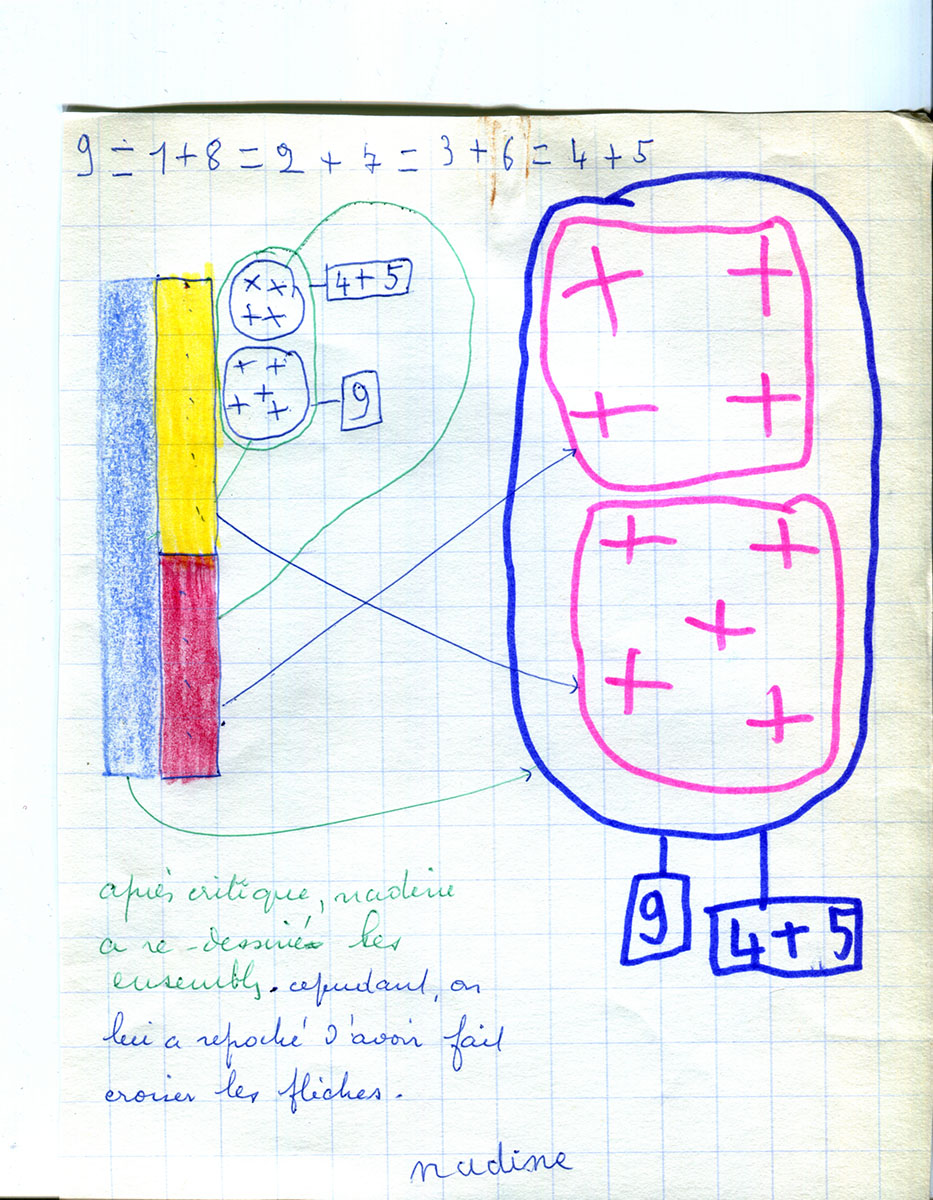 9 = 1 + 8 = 2 + 7 = 3 + 6 = 4 + 5
4 + 5
9
9
4 + 5
après critique, nadine
a re-dessiné les
ensembls. cependant, on
lui a repoché d'avoir fait
croiser les flèches.
nadine